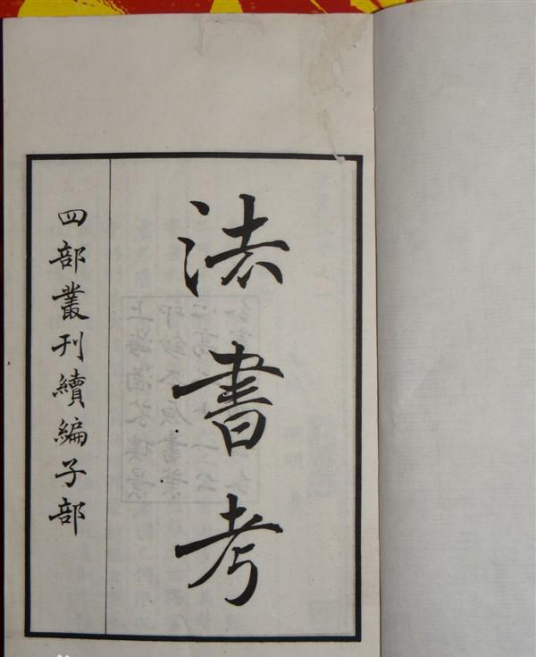 法書考
四部叢刊續編子部